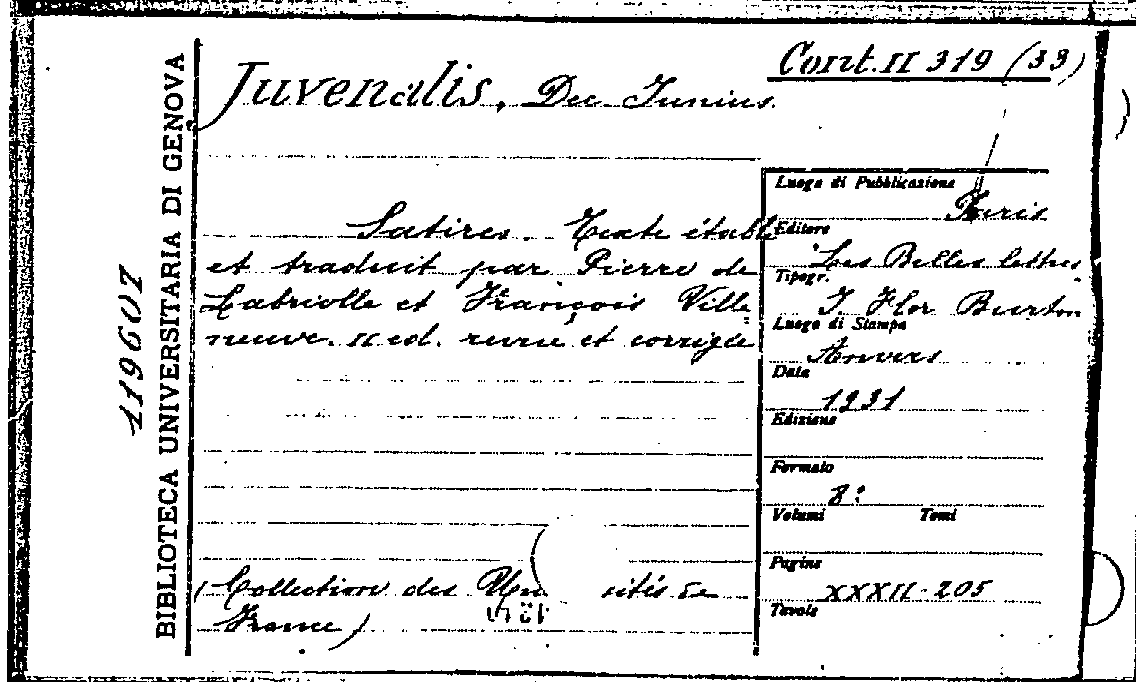 Cont. II 319 (33)
Juvenalis, Dec Junius.
BIBLIOTECA UNIVERSITARIA DI GENOVA
119607
Satires. Texte établi
et traduit par Pierre de
Labriolle et François Ville
neuve. II ed. revue et corrigée
(Collection des Un sités de
France)
Luogo di Pubblicazione
Paris
Editore
"Les Belles lettres"
Tipogr.
J Flor Burton
Luogo di Stampa
Anvers
Data
1931
Edizione
Formato
8°
Volumi Tomi
Pagine
XXXII-205
Tavole